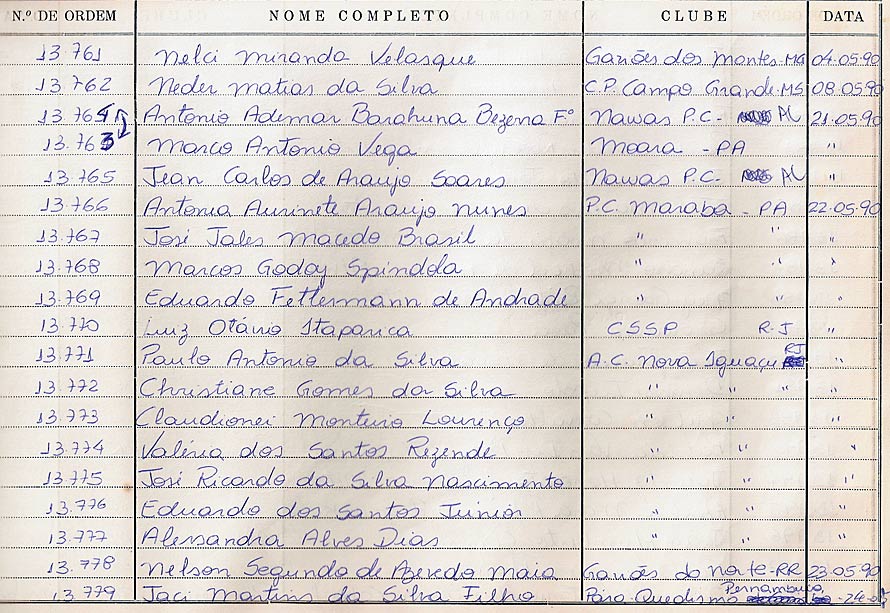 N.º DE ORDEM NOME COMPLETO CLUBE DATA
13.761 Nelci Miranda Velasque Gaviões dos Montes-MG 04.05.90
13.762 Neder Matias da Silva C.P. Campo Grande-MS 08.05.90
13.764 Antonio Ademar Barahuna Bezerra Fº Nawas P.C- AC 21.05.90
13.763 Marco Antonio Vega Moara - PA "
13.765 Jean Carlos de Araujo Soares Nawas P.C- AC "
13.766 Antonia Aurinete Araujo Nunes P.C. Maraba - PA 22.05.90
13.767 José Jales Macedo Brasil " " "
13.768 Marcos Godoy Spindola " " "
13.769 Eduardo Fettermann de Andrade " " "
13.770 Luiz Otávio Itaparica CSSP RJ "
13.771 Paulo Antonio da Silva A.C. Nova Iguaçu RJ "
13.772 Christiane Gomes da Silva " " " "
13.773 Claudionei Monteiro Lourenço " " "
13.774 Valéria dos Santos Rezende " " "
13.775 José Ricardo da Silva Nascimento " " "
13.776 Eduardo dos Santos Junior " " "
13.777 Alessandra Alves Dias " " "
13.778 Nelson Segundo de Azevedo Maia Gaviões do Norte-RR 23.05.90
13.779 Jaci Martins da Silva Filho Pernambuco